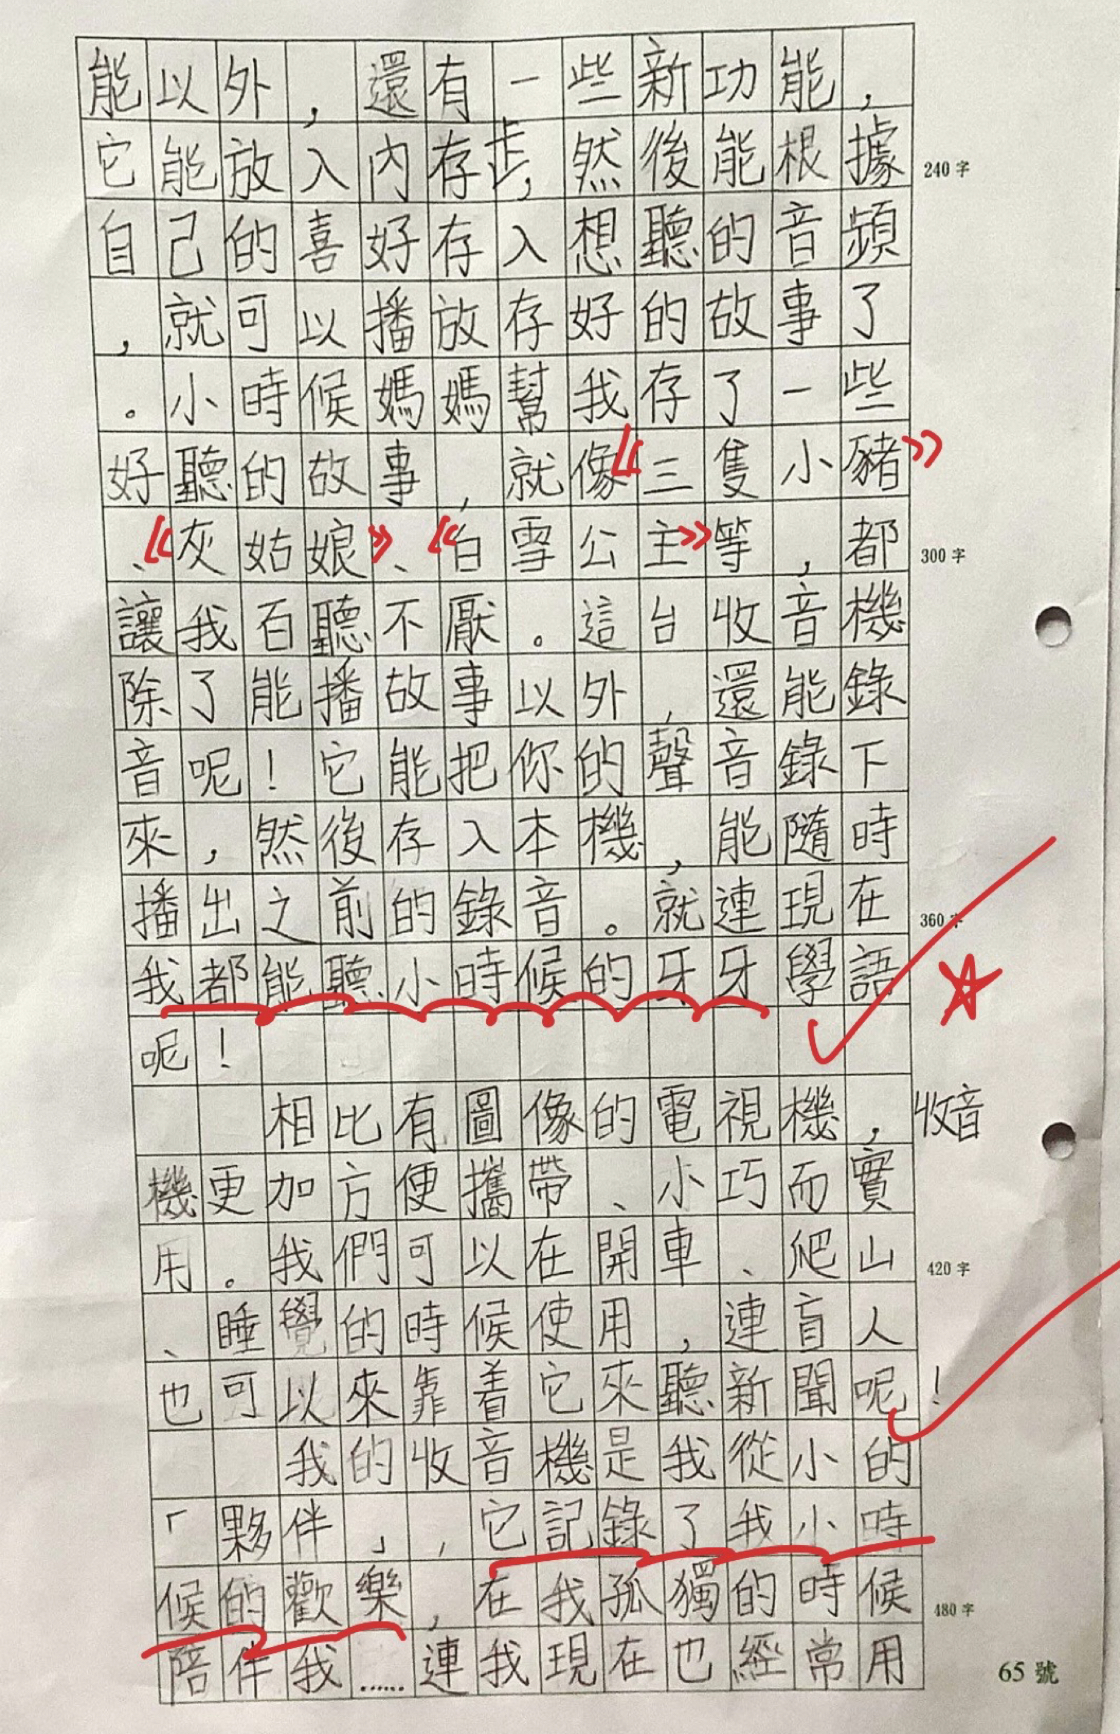 能以外，還有一些新功能，
它能放入內存卡，然後能根據 240字
自己的喜好存入想聽的音頻
，就可以播放存好的故事了
。小時候媽媽幫我存了一些
好聽的故事，就像《三隻小豬》
、《灰姑娘》、《白雪公主》等，都 300字
讓我百聽不厭。這台收音機
除了能播故事以外，還能錄
音呢！它能把你的聲音錄下
來，然後存入本機，能隨時
播出之前的錄音。就連現在 360字
我都能聽小時候的牙牙學語
呢！
相比有圖像的電視機，收音
機更加方便攜帶、小巧而實
用。我們可以在開車、爬山 420字
、睡覺的時候使用，連盲人
也可以來靠着它來聽新聞呢！
我的收音機是我從小的
「夥伴」，它記錄了我小時
候的歡樂，在我孤獨的時候 480字
陪伴我……連我現在也經常用
65號